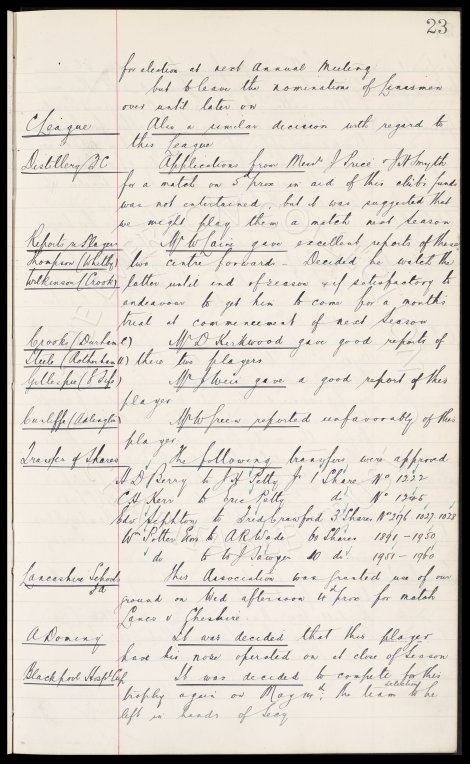 23
for election at next Annual Meeting
but to leave the nominations of Linesmen
over until later on
C League Also a similar decision with regard to
this League
Distillery FC Applications from Messrs J Price & J H Smyth
for a match on prox in aid of this clubs funds
was not entertained, but it was suggested that
we might play them a match next Season
Reports re Players Mr W Cairns gave excellent reports of these
Thompson (Whitby) two centre forwards - Decided he watch the
Wilkinson (Crook) latter until end of season & if satisfactory to
endeavour to get him to come for a months
trial at commencement of next Season
Crooks (Durham C) Mr D Kirkwood gave good reports of
Steele (Rotherham) these two players
Gillespie Mr J Weir gave a good report of this
player
Cunliffe (Adlington) Mr W Green reported unfavorably of this
player
Transfer of Shares The following transfers were approved
H D Berry to J H Petty Jr 1 Share No 1222
C H Kerr to Petty do No
Edw Sephton to Fred Crawford 3 Shares Nos 1027. 1028
Wm Potter to A R Wade 60 Shares 1891 - 1950
do to W J Sawyer 10 do 1951 - 1960
Lancashire Schools This Association was granted use of our
ground on Wed afternoon prox for match
Lancs v Cheshire.
A Dominy It was decided that this player
have his nose operated on at close of Season
Blackpool Hospl Cup It was decided to compete for this
trophy again on May the selecting team to be
left in hands of Secy